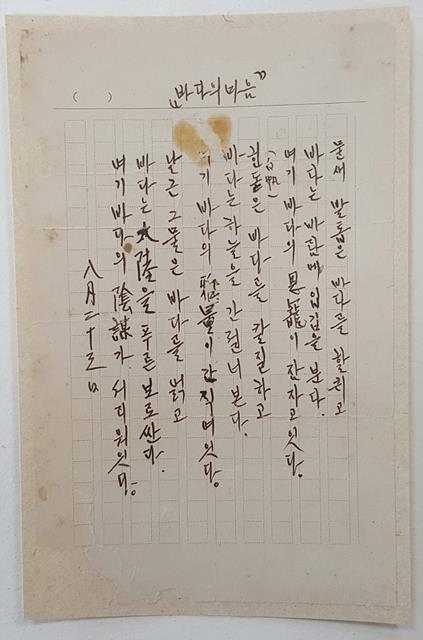 “바다의마음”
( )
물새 발톱은 바다를 할퀴고
바다는 바람에 입김을 분다.
여기 바다의 恩寵이 잠자고잇다.
흰돛은 (白帆) 바다를 칼질하고
바다는 하늘을 간질너 본다.
여기 바다의 雅量이 간직여잇다.
날근 그물은 바다를 얽고
바다는 大陸을 푸른 보로싼다.
여기 바다의 陰謀가 서리워잇다.
八月二十三日